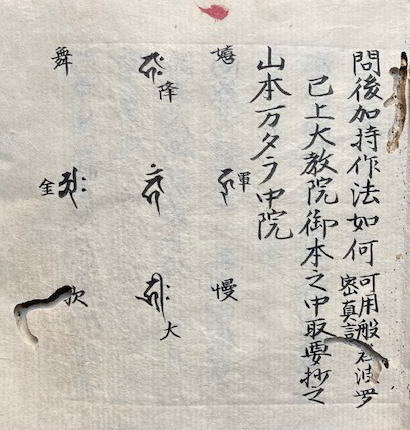 問後加持作法如何 可用般若波羅
密真言
已上大教院御本之中取要抄之
山本万タラ中院
嬉 軍 慢
降 大
舞 金 次